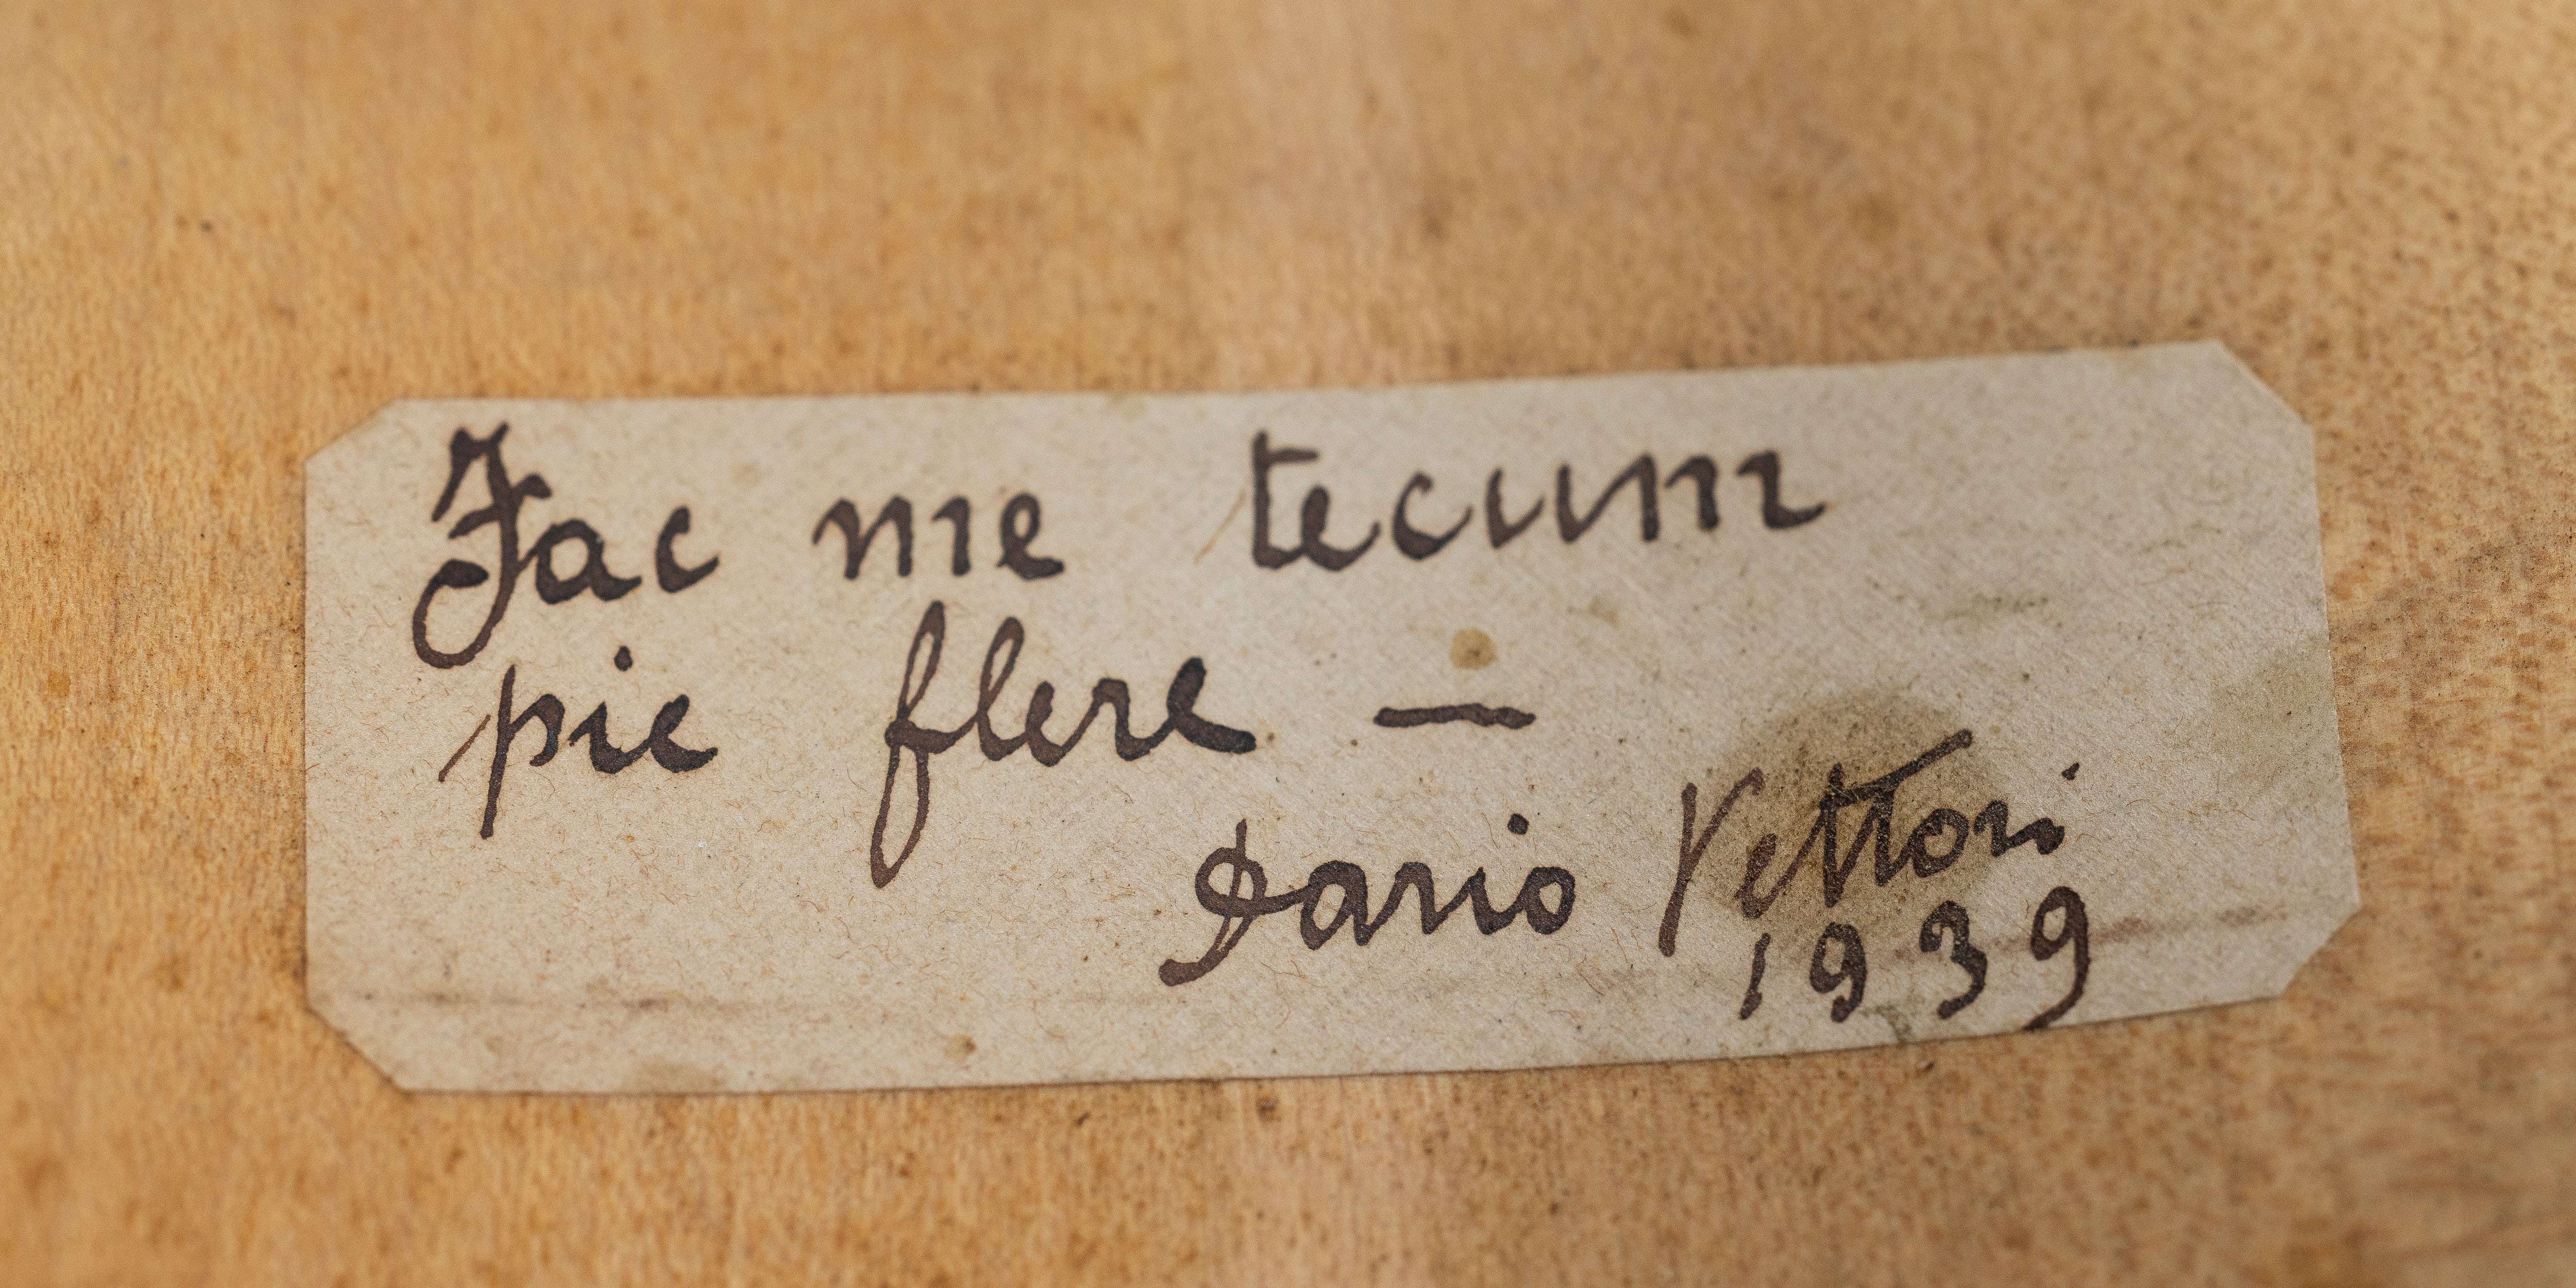 Fac me tecum
pie flere —
Dario Vettori
1939